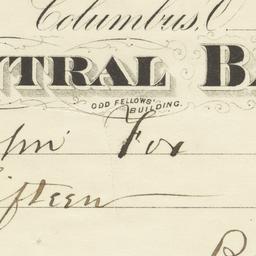 Columbus, O
NTRAL BA
ODD FELLOWS' BUILDING.
hn Fox
ifteen
R